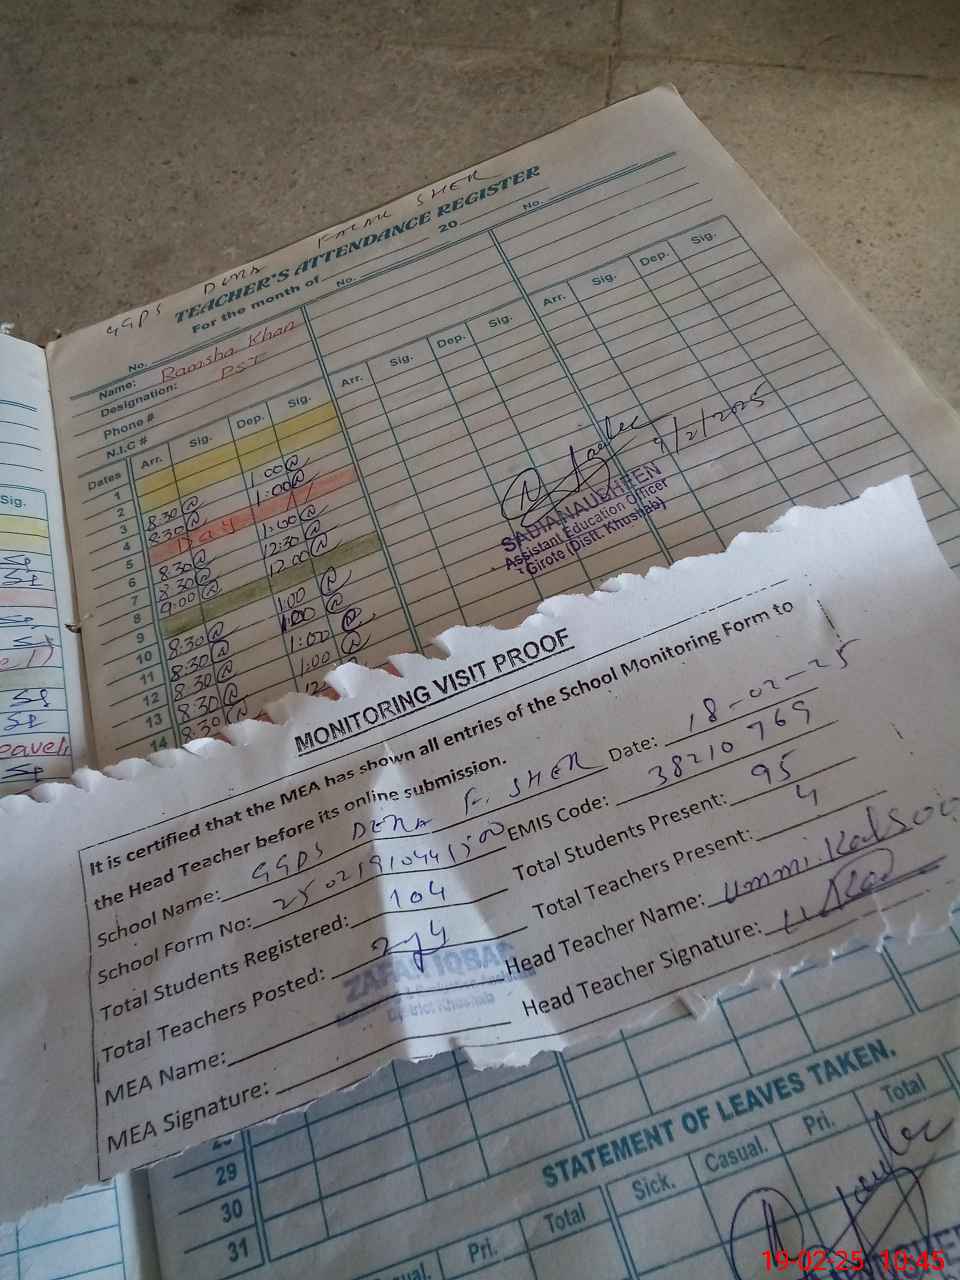 GGPS DERA KALAR SHER
TEACHER'S ATTENDANCE REGISTER
For the month of 20
No. No. No.
Name: Ramsha Khan
Designation: PST
Phone #
N.I.C #
Dates Arr. Sig. Dep. Sig. Arr. Sig. Dep. Sig. Arr. Sig. Dep. Sig.
1
2
3 8:30 1:00
4 8:30 1:00
5
6 8:30 1:00
7 8:30 12:30
8 9:00 12:00
9
10 8:30 1:00
11 8:30 1:00
12 8:30 1:00
13 8:30 1:00
14 8:30 12
9/2/2025
SADIA NAUSHEEN
Assistant Education Officer
Girote (Distt. Khushab)
Sig.
MONITORING VISIT PROOF
It is certified that the MEA has shown all entries of the School Monitoring Form to
the Head Teacher before its online submission.
School Name: GGPS DERA K. SHER Date: 18-02-25
School Form No: EMIS Code: 38210769
Total Students Registered: 104 Total Students Present: 95
Total Teachers Posted: 4 Total Teachers Present: 4
MEA Name: ZAFAR IQBAL Head Teacher Name: Ummi.Kalsoo
District Khushab
MEA Signature: Head Teacher Signature:
29
30
31
STATEMENT OF LEAVES TAKEN.
Pri. Total Sick. Casual. Pri. Total
19-02-25 10:45